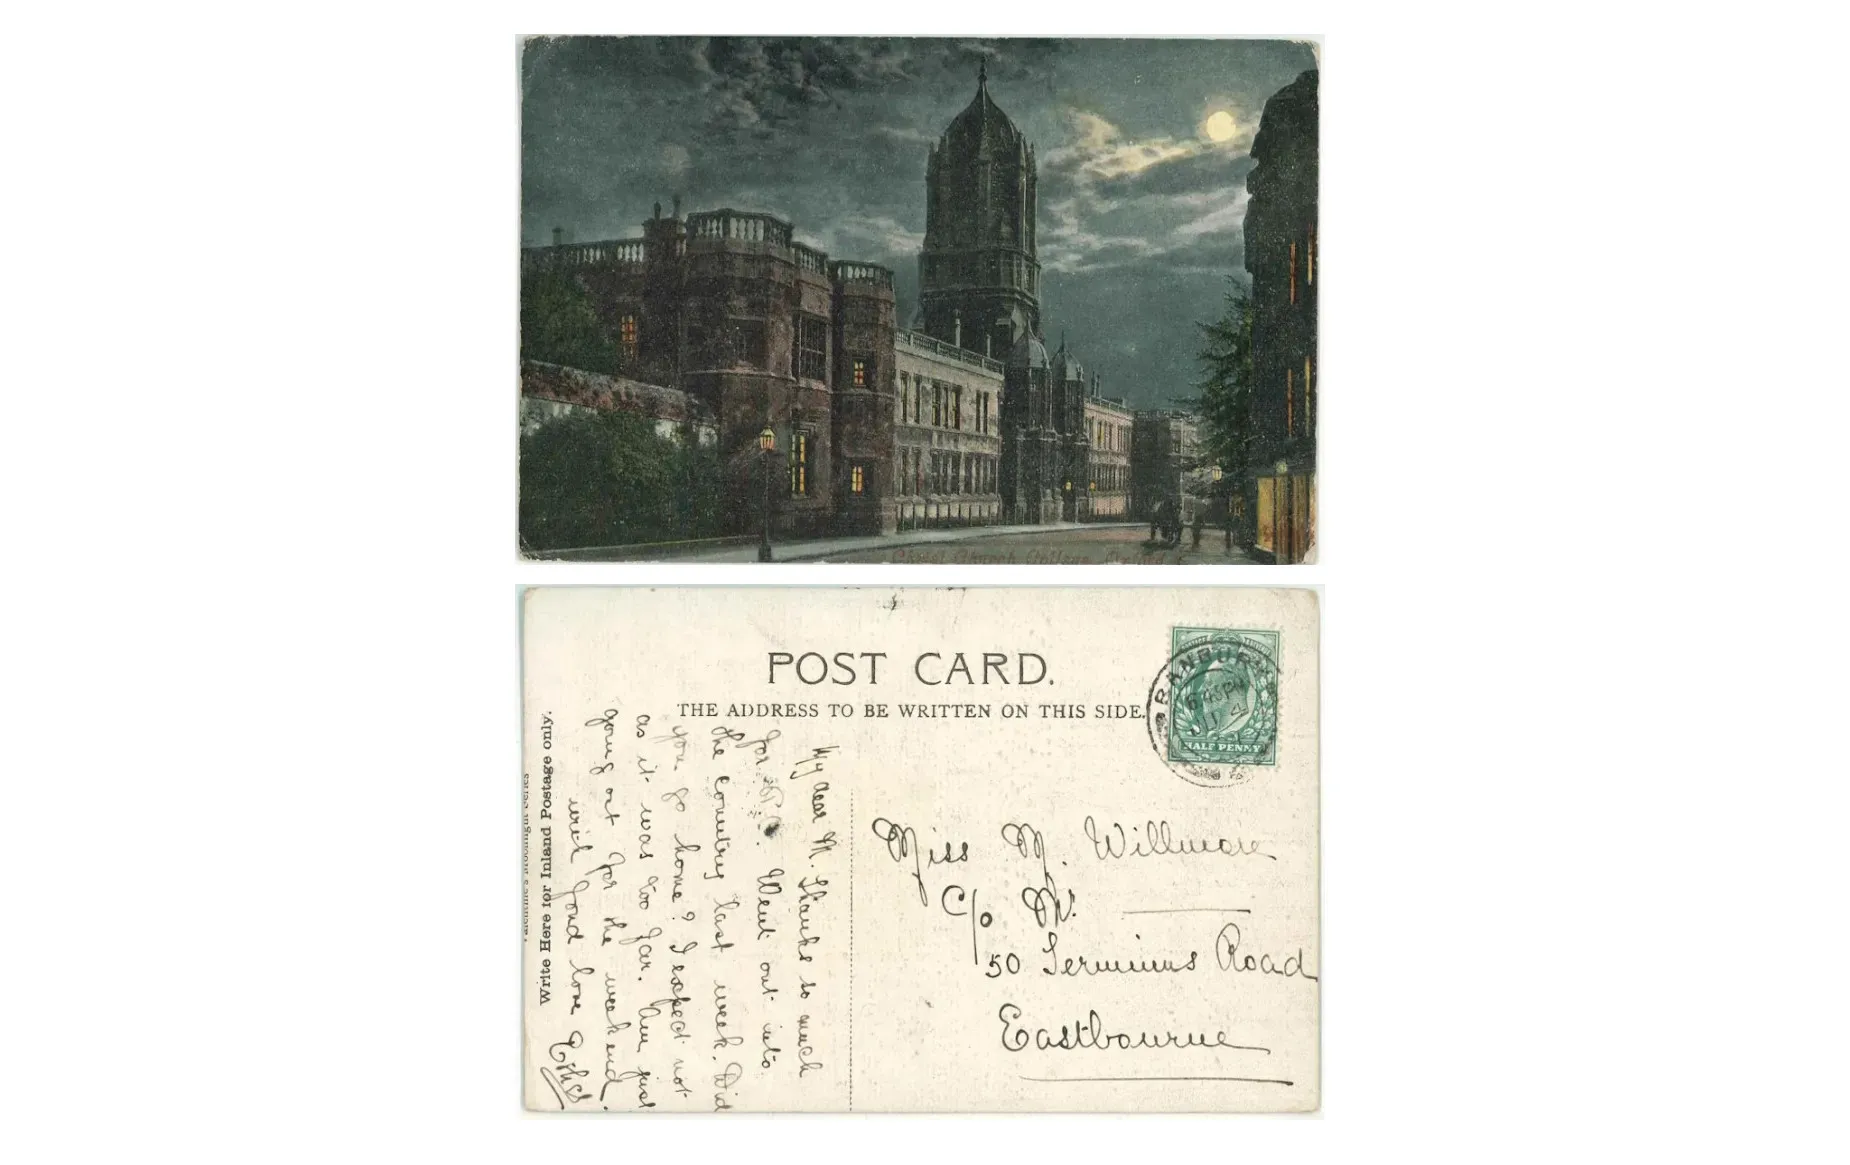 Christ Church College, Oxford
POST CARD.
THE ADDRESS TO BE WRITTEN ON THIS SIDE.
BANBURY
6 45 PM
HALF PENNY
Valentine's Moonlight Series
Write Here for Inland Postage only.
My dear M. Thanks so much
for P.C. Went out into
the country last week. Did
you go home? I expect not
as it was too far. Am just
going out for the week end.
with fond love Ethel
Miss M. Willmore
C/o Mr.
50 Terminus Road
Eastbourne